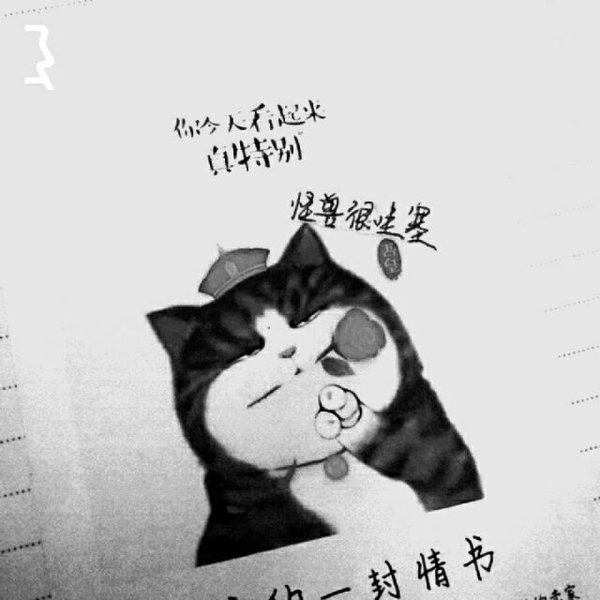 你今天看起来
真特别
怪兽很哇塞
吾皇
一封情书